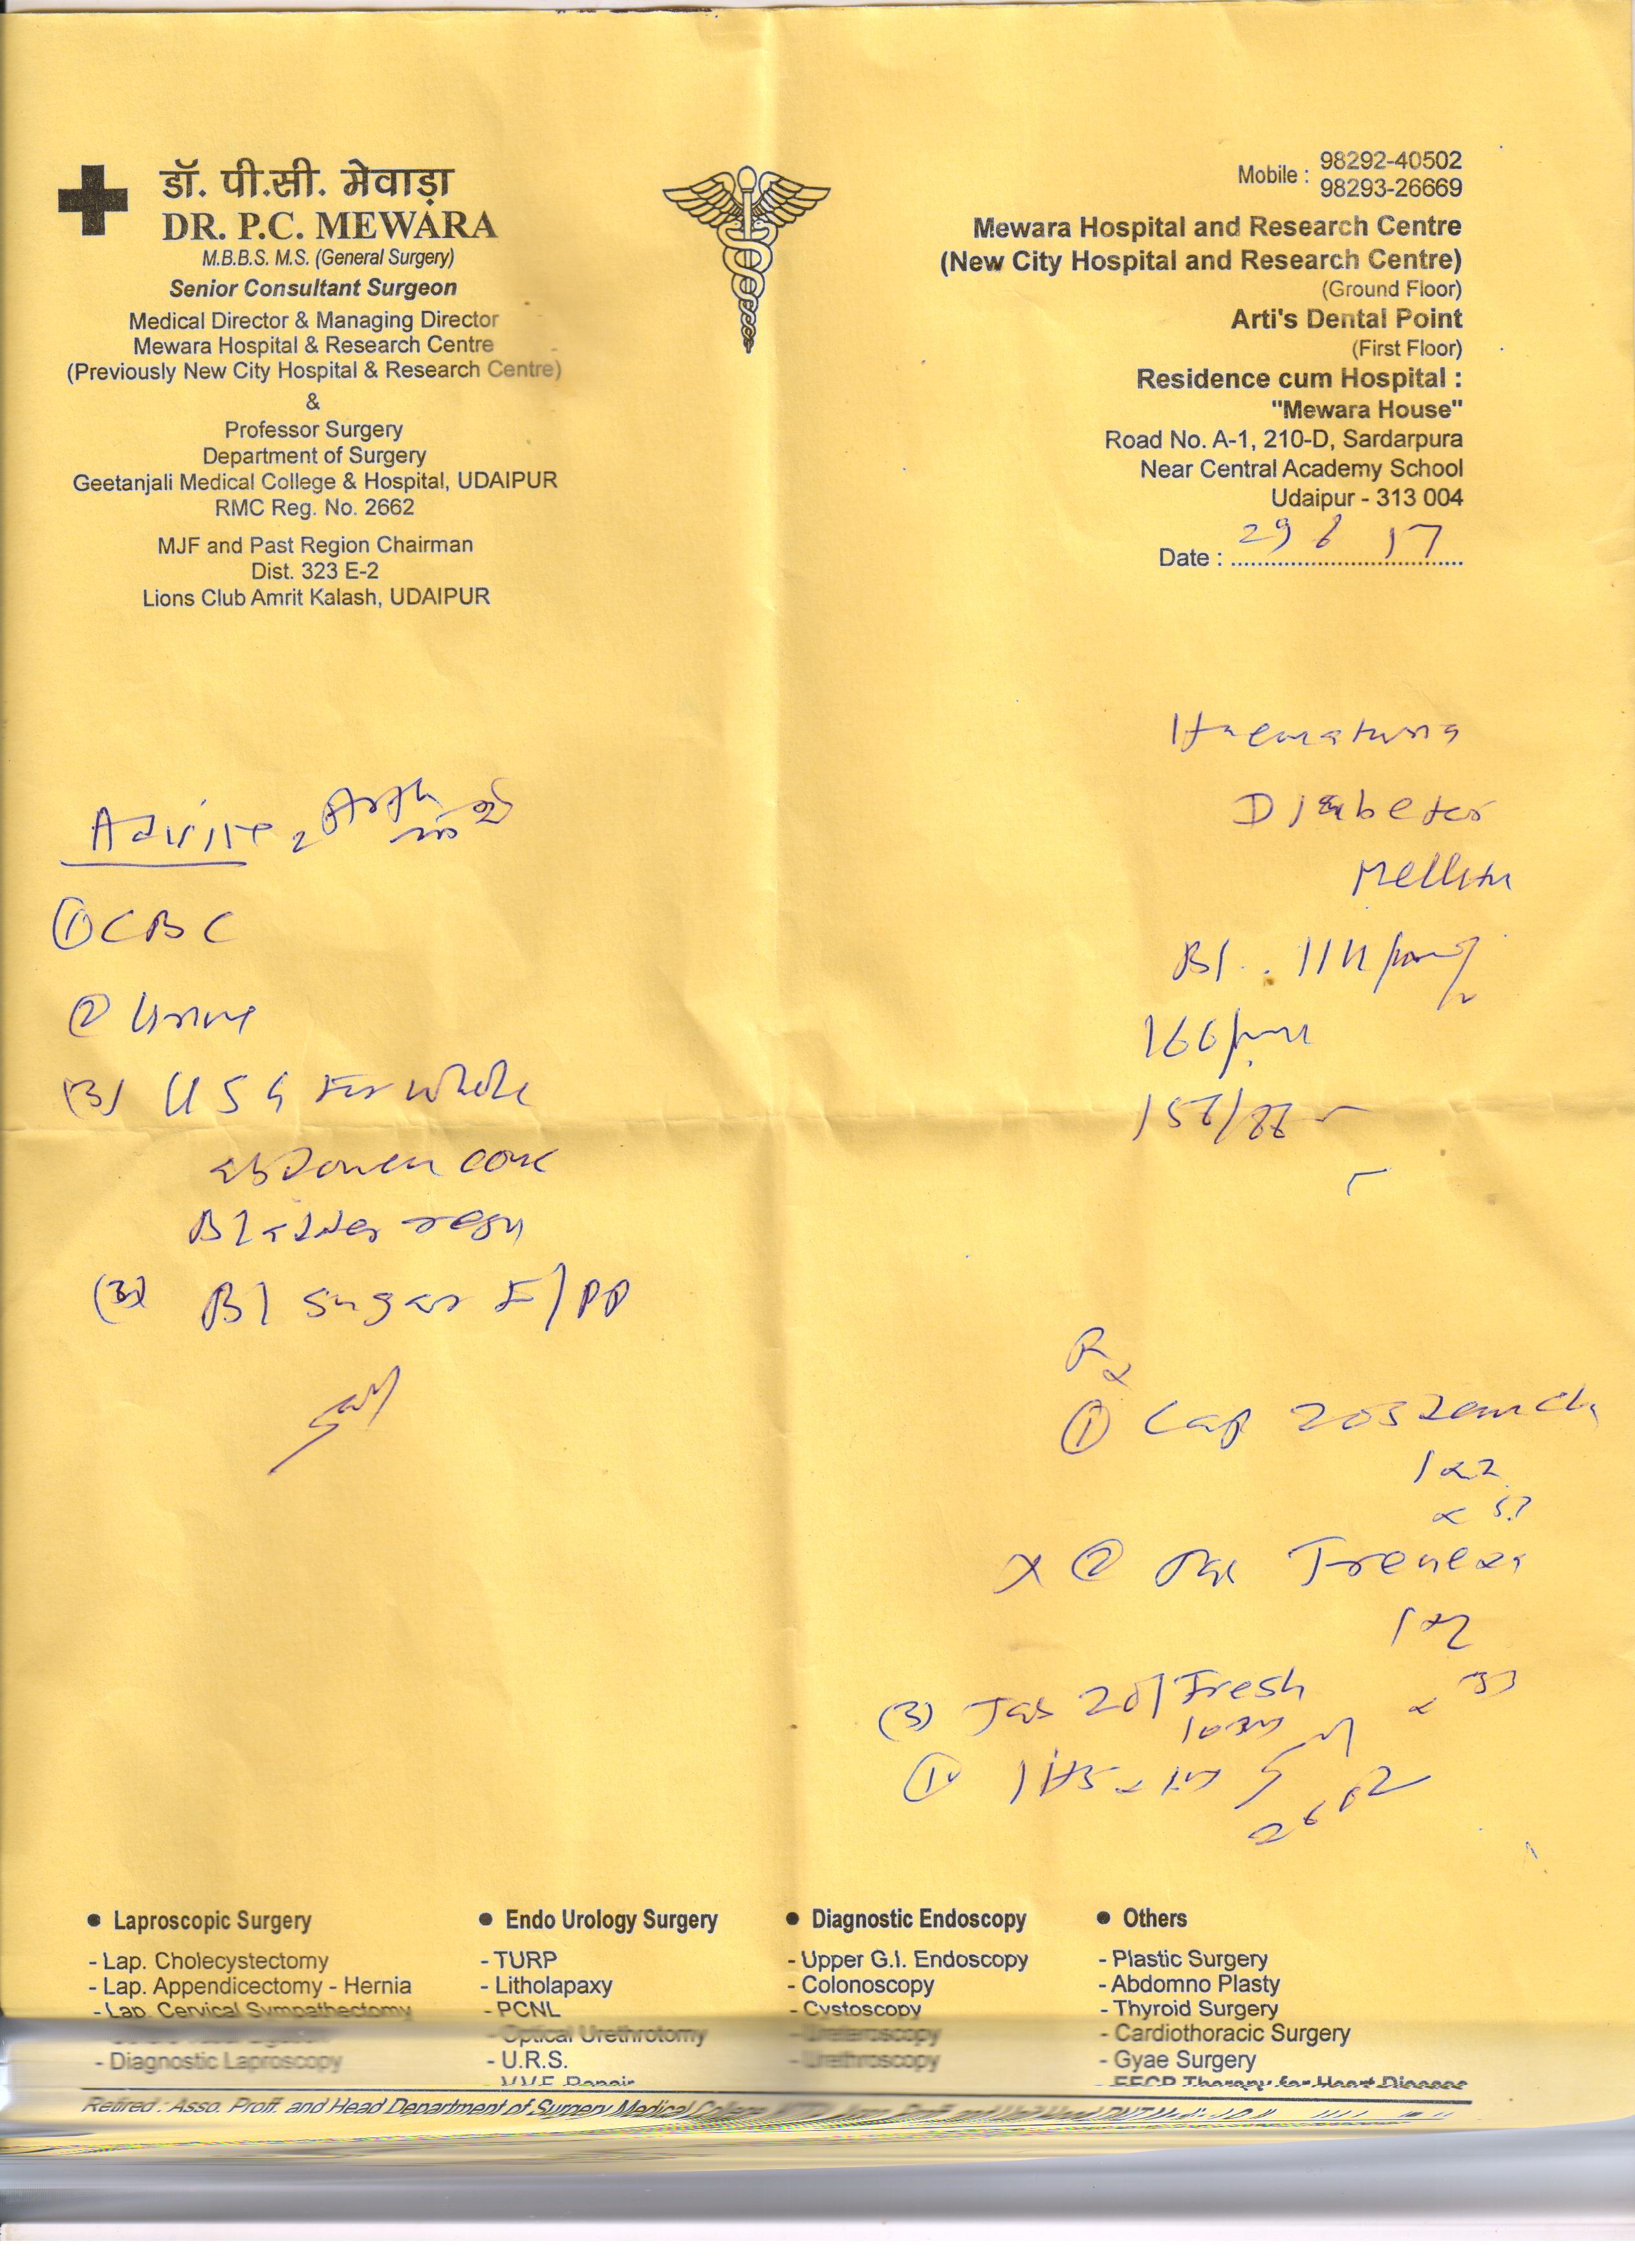 डॉ. पी.सी. मेवाड़ा
DR. P.C. MEWARA
M.B.B.S. M.S. (General Surgery)
Senior Consultant Surgeon
Medical Director & Managing Director
Mewara Hospital & Research Centre
(Previously New City Hospital & Research Centre)
&
Professor Surgery
Department of Surgery
Geetanjali Medical College & Hospital, UDAIPUR
RMC Reg. No. 2662
MJF and Past Region Chairman
Dist. 323 E-2
Lions Club Amrit Kalash, UDAIPUR
Mobile : 98292-40502
98293-26669
Mewara Hospital and Research Centre
(New City Hospital and Research Centre)
(Ground Floor)
Arti's Dental Point
(First Floor)
Residence cum Hospital :
"Mewara House"
Road No. A-1, 210-D, Sardarpura
Near Central Academy School
Udaipur - 313 004
Date : 29 6 17
Haematuria
Diabetes
Mellitus
Advise
① CBC
② Urine
(3) USG For whole
abdomen
Bladder
(3) Bl sugar F/PP
Rx
① Cap
1 x 2
x ②
1 x 2
(3) Tab Fresh
• Laproscopic Surgery
- Lap. Cholecystectomy
- Lap. Appendicectomy - Hernia
- Lap. Cervical Sympathectomy
- Diagnostic Laproscopy
• Endo Urology Surgery
- TURP
- Litholapaxy
- PCNL
- Optical Urethrotomy
- U.R.S.
- V.V.F. Repair
• Diagnostic Endoscopy
- Upper G.I. Endoscopy
- Colonoscopy
- Cystoscopy
- Ureteroscopy
- Urethroscopy
• Others
- Plastic Surgery
- Abdomno Plasty
- Thyroid Surgery
- Cardiothoracic Surgery
- Gyae Surgery
- EECP Therapy for Heart Disease
Retired : Asso. Proff. and Head Department of Surgery Medical College